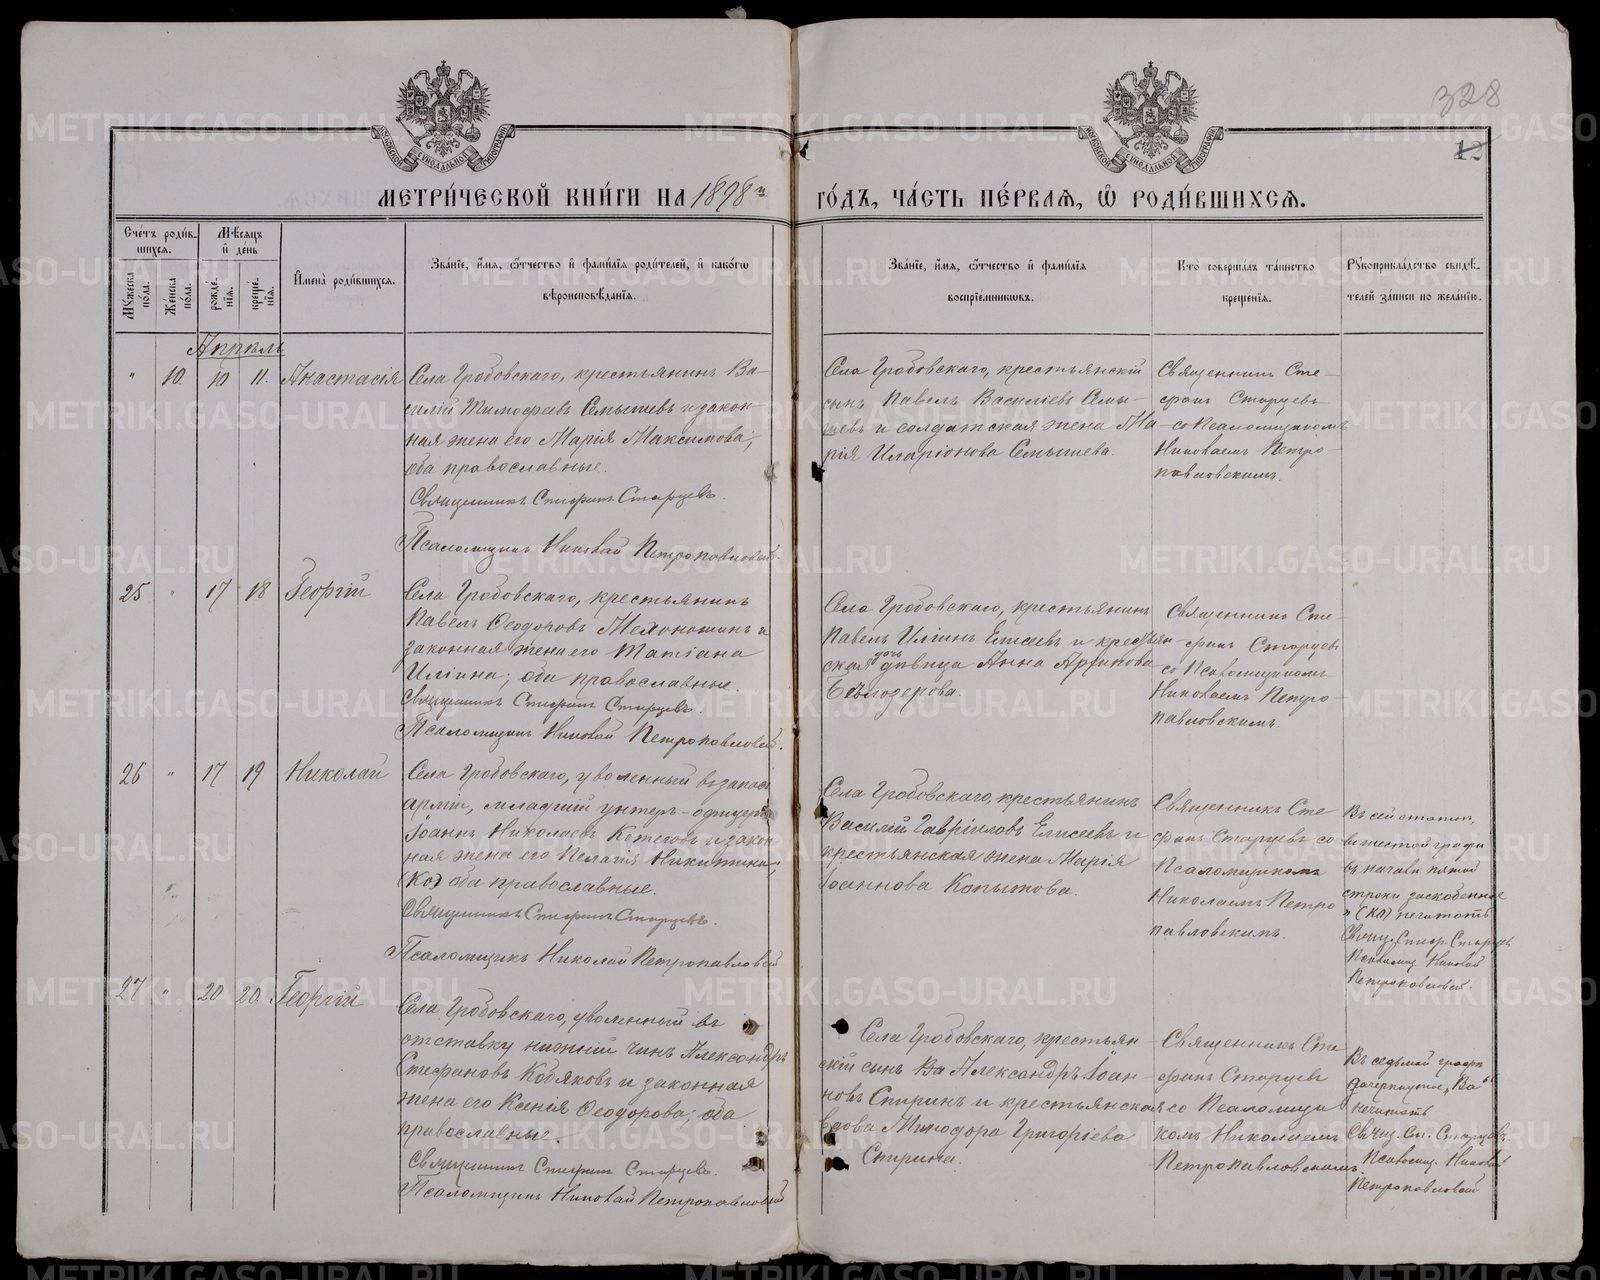 328
12
МОСКОВСКОЙ СУНОДАЛЬНОЙ ТИПОГРАФИИ
МОСКОВСКОЙ СУНОДАЛЬНОЙ ТИПОГРАФИИ
МЕТРИ́ЧЕСКОЙ КНИ́ГИ НА 1898й ГО́ДЪ, ЧА́СТЬ ПЕ́РВАЯ, Ѡ РОДИ́ВШИХСЯ.
Сче́тъ роди́в-
шихся.
Му́жеска по́ла.
Же́нска по́ла.
Мѣ́сяцъ
и де́нь
рожде́-
нія.
креще́-
нія.
Имена̀ роди́вшихся.
Зва́ніе, и́мя, ѻ́тчество и фами́лія роди́телей, и како́гѡ
вѣроисповѣ́данія.
Зва́ніе, и́мя, ѻ́тчество и фами́лія
воспріе́мниковъ.
Кто̀ соверша́лъ та́инство
креще́нія.
Рукоприкла́дство свидѣ́-
телей за́писи по жела́нію.
Апрѣль
" 10. 10 11. Анастасія
Села Гробовскаго, крестьянинъ Ва-
силій Тимофеевъ Семышевъ и закон-
ная жена его Марія Максимова;
оба православные.
Священникъ Стефанъ Старцевъ.
Псаломщикъ Николай Петропавловскій
Села Гробовскаго, крестьянскій
сынъ Павелъ Василіевъ Семы-
шевъ и солдатская жена Ма-
рія Иларіонова Семышева.
Священникъ Сте-
фанъ Старцевъ
со Псаломщикомъ
Николаемъ Петро-
павловскимъ.
25 " 17 18 Георгій
Села Гробовскаго, крестьянинъ
Павелъ Ѳеодоровъ и
законная жена его Татіана
Иліина; оба православные.
Священникъ Стефанъ Старцевъ.
Псаломщикъ Николай Петропавловскій.
Села Гробовскаго, крестьянинъ
Павелъ Иліинъ Елисеевъ и крестьян
ская дочь дѣвица Анна Архипова
Бѣлозерова.
Священникъ Сте-
фанъ Старцевъ
со Псаломщикомъ
Николаемъ Петро-
павловскимъ.
26 " 17 19 Николай
Села Гробовскаго, уволенный въ запасъ
арміи, младшій унтеръ-офицеръ
Іоаннъ Николаевъ Котеговъ и закон-
ная жена его Пелагія Никитина;
(Ко) оба православные.
Священникъ Стефанъ Старцевъ.
Псаломщикъ Николай Петропавловскій
Села Гробовскаго, крестьянинъ
Василій Гавріиловъ Елисеевъ и
крестьянская жена Марія
Іоаннова Копытова.
Священникъ Сте
фанъ Старцевъ со
Псаломщикомъ
Николаемъ Петро
павловскимъ.
Въ сей статьѣ,
въ шестой графѣ
въ началѣ пятой
строки заскобленное
"(Ко) нечитать
Свящ. Стеф. Старцевъ
Псаломщ. Николай
Петропавловскій.
27 " 20 20 Георгій
Села Гробовскаго, уволенный въ
отставку нижній чинъ Александръ
Стефановъ Кобяковъ и законная
жена его Ксенія Ѳеодорова; оба
православные.
Священникъ Стефанъ Старцевъ.
Псаломщикъ Николай Петропавловскій
Села Гробовскаго, крестьян-
скій сынъ Ва Александръ Іоан-
новъ Спиринъ и крестьянская
вдова Минодора Григоріева
Спирина.
Священникъ Сте
фанъ Старцевъ
со Псаломщи
комъ Николаемъ
Петропавловскимъ.
Въ седьмой графѣ
зачеркнутое "Ва"
нечитать
Свящ. Ст. Старцевъ.
Псаломщ. Николай
Петропавловскій
METRIKI.GASO-URAL.RU